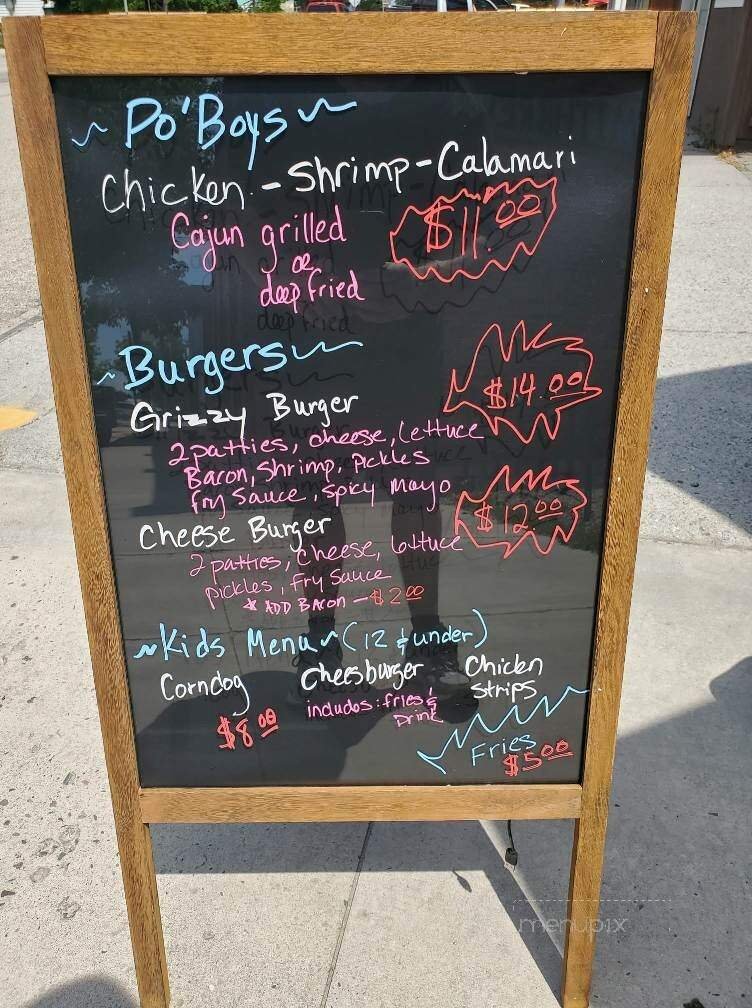 ~ Po'Boys ~
Chicken - Shrimp - Calamari
Cajun grilled
or
deep fried
$11.00
~ Burgers ~
Grizzy Burger
$14.00
2 patties, cheese, lettuce
Bacon, Shrimp, Pickles
fry Sauce, Spicy Mayo
Cheese Burger
$12.00
2 patties, Cheese, lettuce
pickles, Fry Sauce
* ADD BACON - $2.00
~ Kids Menu ~ (12 & under)
Corndog Cheesburger Chicken Strips
includes: fries &
Drink
$8.00
Fries
$5.00
menupix